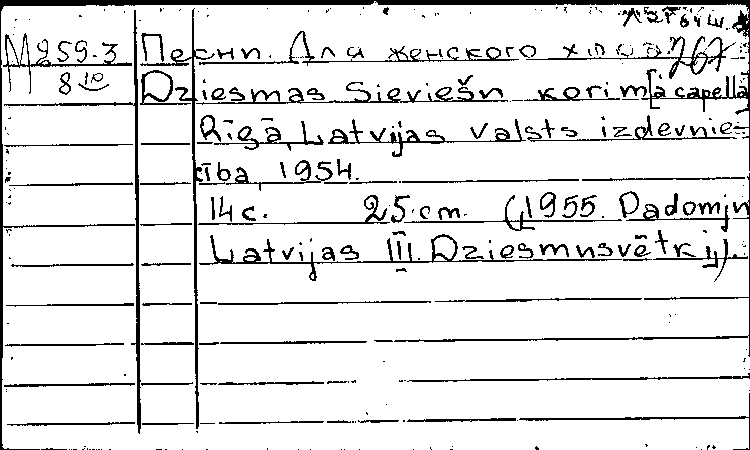 Латыш.
М 259.3 Песни. Для женского хора. 267
8 10 Dziesmas Sieviešu korim [à capella]
Rīgā, Latvijas valsts izdevnie-
cība, 1954.
14 с. 25 cm. (1955. Padomju
Latvijas III. Dziesmusvētkij).